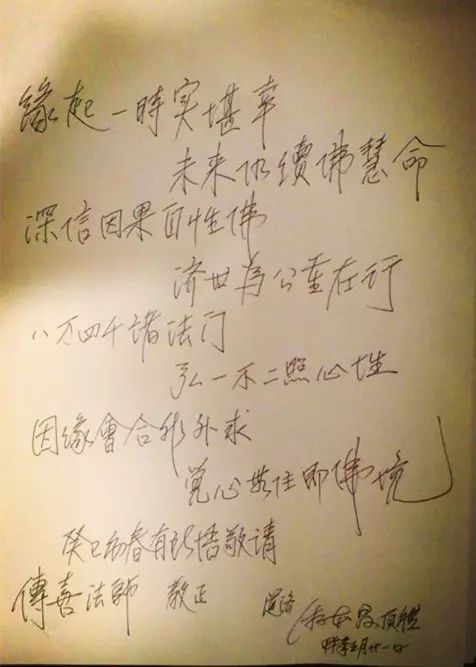 緣起一時実堪幸
未来仍續佛慧命
深信因果自性佛
济世为公重在行
八万四千诸法门
弘一不二照心性
因緣會合非外求
觉心安住即佛境
癸巳初春有所悟敬请
傳喜法師 教正
顶礼